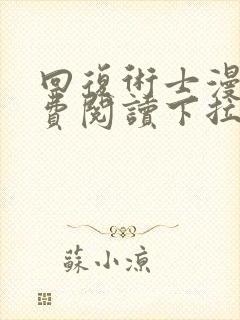 回復術士漫
費閱讀下拉
蘇小涼